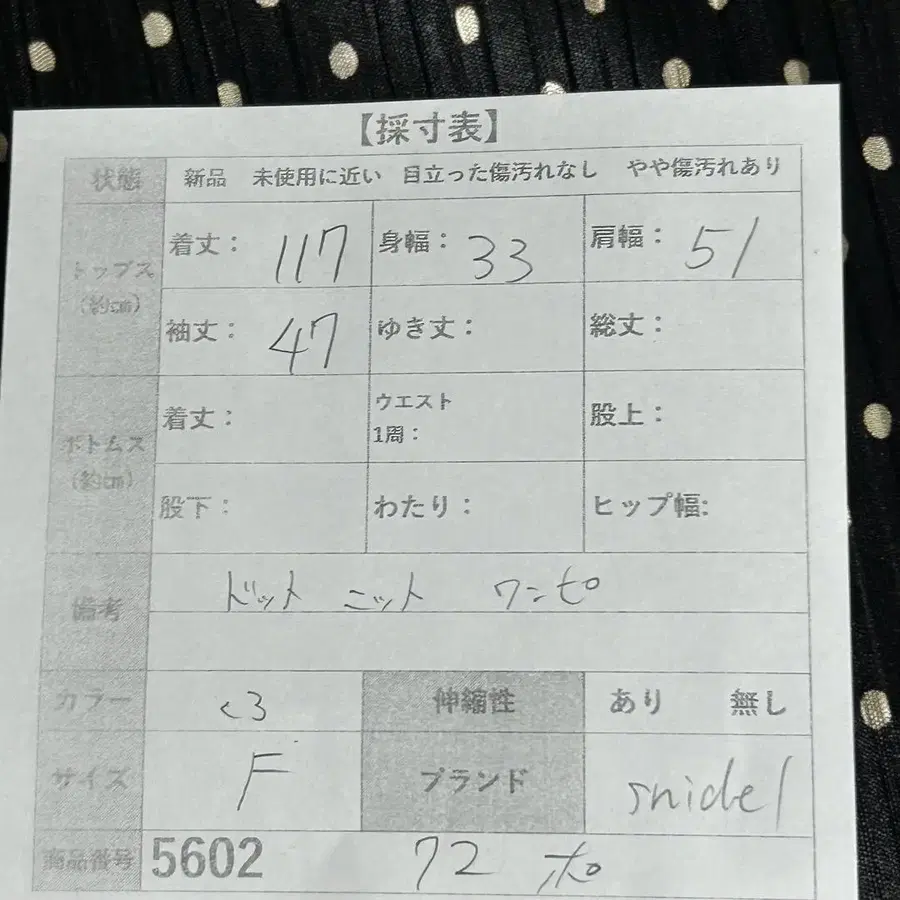 【採寸表】
状態 新品 未使用に近い 目立った傷汚れなし やや傷汚れあり
トップス 着丈: 117 身幅: 33 肩幅: 51
(約cm)
袖丈: 47 ゆき丈: 総丈:
ボトムス 着丈: ウエスト 股上:
1周:
(約cm)
股下: わたり: ヒップ幅:
備考 ドット ニット ワンピ
カラー くろ 伸縮性 あり 無し
サイズ F ブランド snidel
商品番号 5602 72 ポ